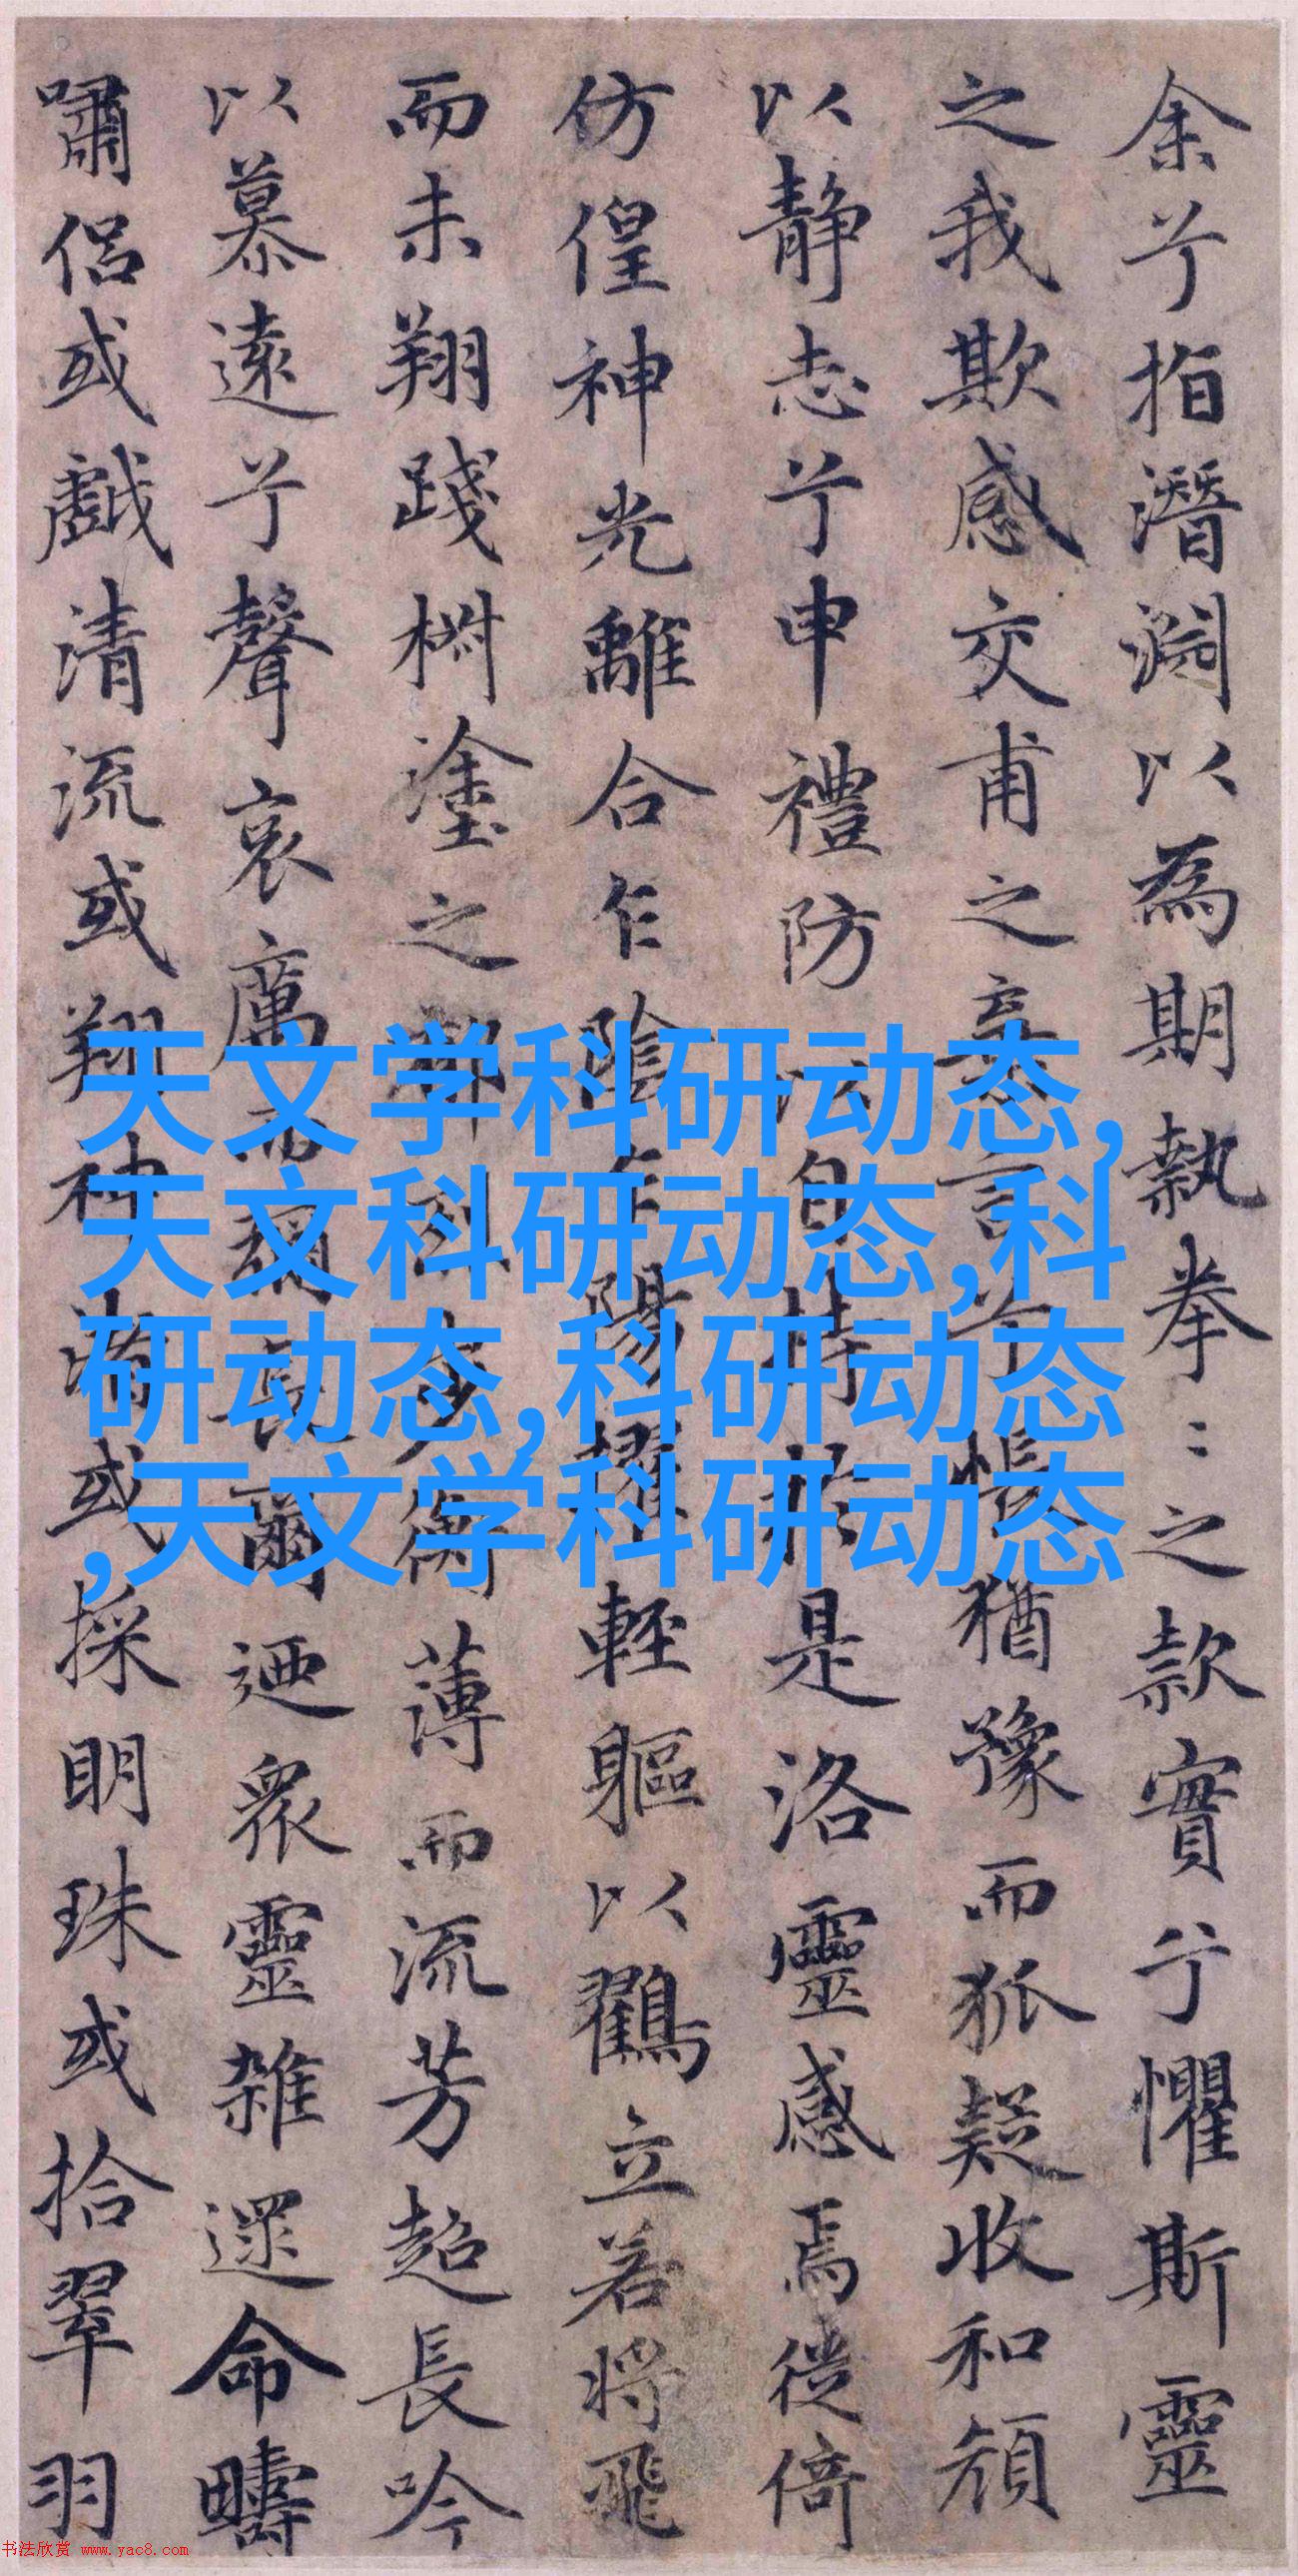 余兮指潛淵以為期執拳〻之款實兮懼斯靈
之我欺感交甫之棄言兮悵猶豫而狐疑收和顏
以靜志兮申禮防以自持於是洛靈感焉徙倚
仿偟神光離合乍陰乍陽擢輕軀以鶴立若將飛
而未翔踐椒塗之郁烈步蘅薄而流芳超長吟
以慕遠兮聲哀厲而彌長爾迺眾靈雜遝命疇
嘯侶或戲清流或翔神渚或採明珠或拾翠羽
天文学科研动态,
天文科研动态,科
研动态,科研动态
,天文学科研动态
书法欣赏 www.yac8.com